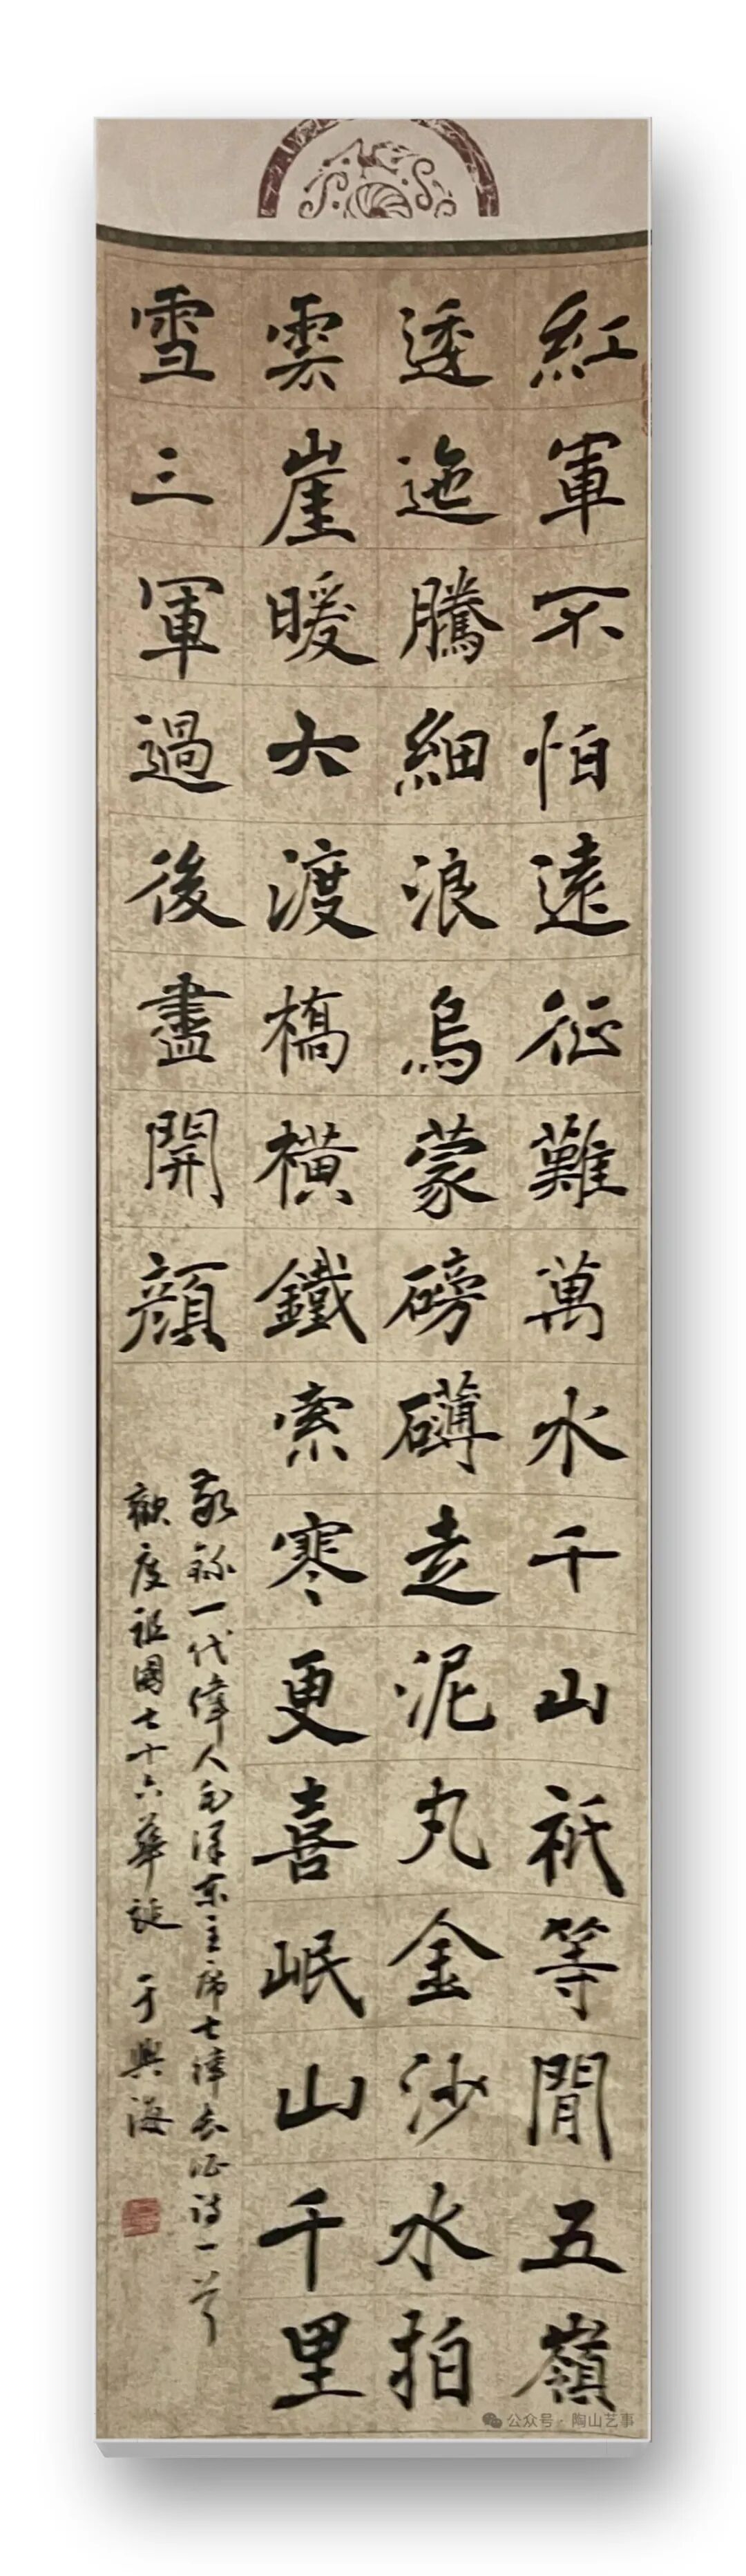 紅軍不怕遠征難萬水千山祇等閒五嶺
逶迤騰細浪烏蒙磅礴走泥丸金沙水拍
雲崖暖大渡橋橫鐵索寒更喜岷山千里
雪三軍過後盡開顏
敬錄一代偉人毛澤東主席七律長征詩一首
歡度祖國七十六華誕 于興海
公众号·陶山艺事